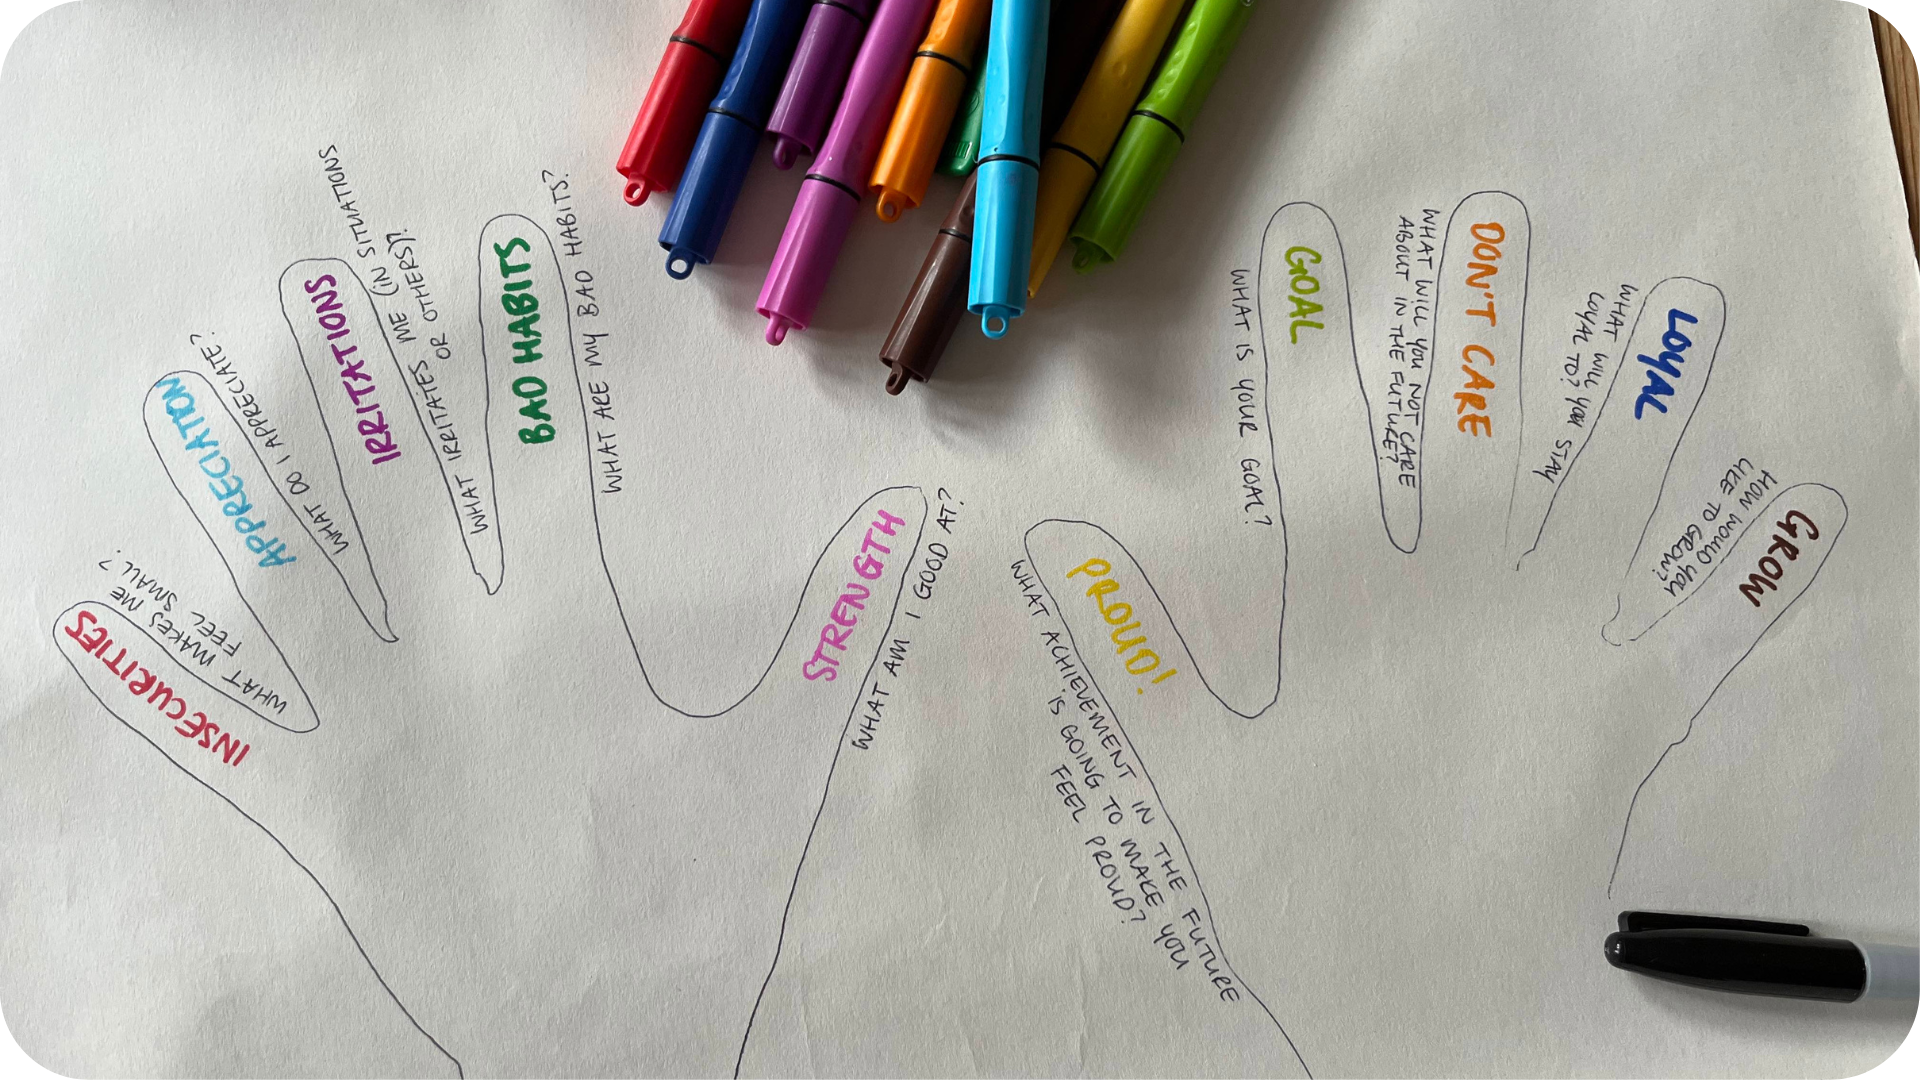 INSECURITIES
WHAT MAKES ME
FEEL SMALL?
APPRECIATION
WHAT DO I APPRECIATE?
IRRITATIONS
WHAT IRRITATES ME (IN SITUATIONS
OR OTHERS)?
BAD HABITS
WHAT ARE MY BAD HABITS?
STRENGTH
WHAT AM I GOOD AT?
PROUD!
WHAT ACHIEVEMENT IN THE FUTURE
IS GOING TO MAKE YOU
FEEL PROUD?
GOAL
WHAT IS YOUR GOAL?
DON'T CARE
WHAT WILL YOU NOT CARE
ABOUT IN THE FUTURE?
LOYAL
WHAT WILL YOU STAY
LOYAL TO?
GROW
HOW WOULD YOU
LIKE TO GROW?